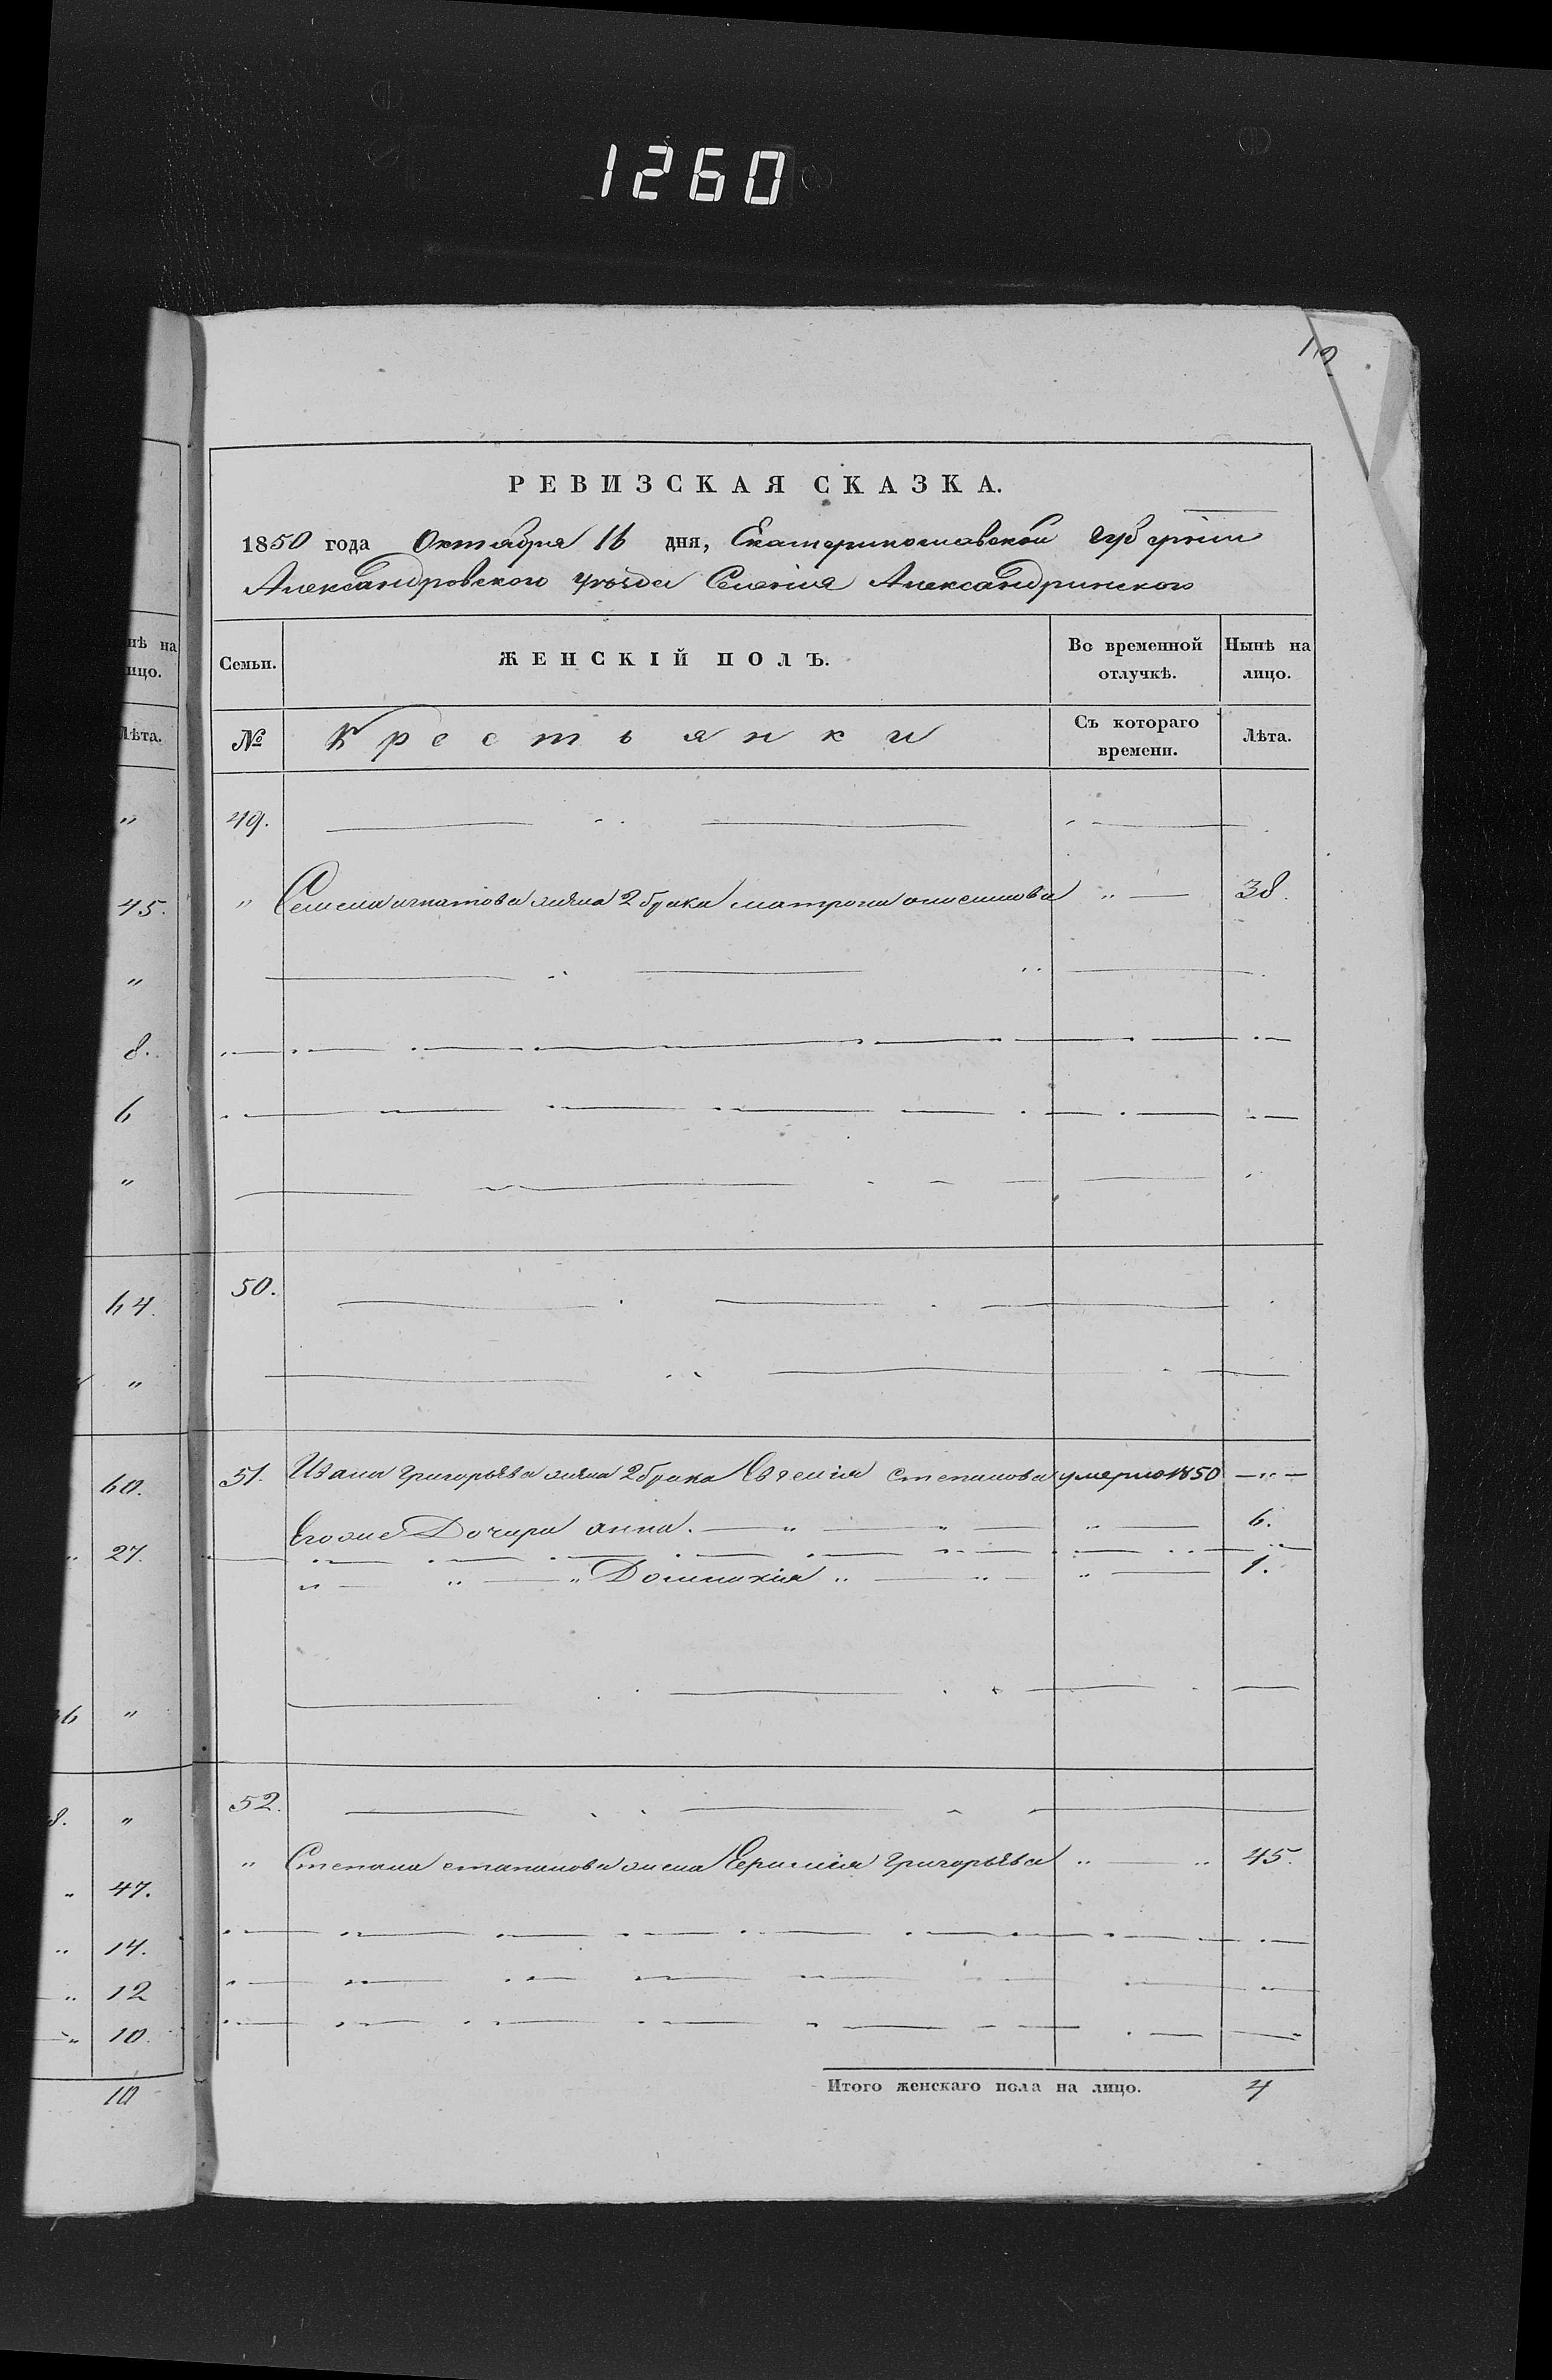 1260
12
РЕВИЗСКАЯ СКАЗКА.
1850 года Октября 16 дня, Екатеринославской губернии
Александровского уезда Селения Александринского
Семьи. ЖЕНСКІЙ ПОЛЪ. Во временной отлучкѣ. Нынѣ на лицо.
№ Крестьянки Съ котораго времени. Лѣта.
49.
" Семена игнатова жена 2 брака матрона анисимова " 38.
50.
51. Ивана григорьева жена 2 брака Евгения степанова умерла 1850
Его же Дочери анна. " " " 6.
" " " Домникия " " " 1.
52.
" Степана степанова жена григорьева " " 45.
Итого женскаго пола на лицо. 4
нѣ на
ицо.
Лѣта.
"
45.
"
8.
6
"
64.
"
60.
" 27.
6 "
8. "
" 47.
" 14.
" 12
" 10.
10